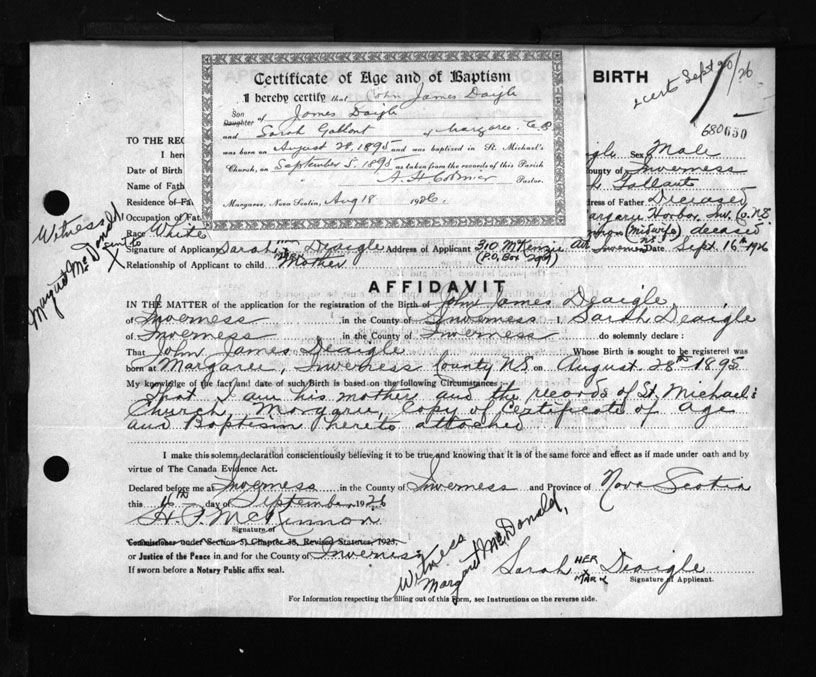 BIRTH
Certs Sept 20/26
680650
Certificate of Age and of Baptism
I hereby certify that John James Daigle
Son
Daughter of James Daigle
and Sarah Gallant of Margaree C.B.
was born on August 28, 1895 and was baptized in St. Michael's
Church, on September 5, 1895 as taken from the records of this Parish
A. H. Cormier Pastor.
Margaree, Nova Scotia, Aug 18 1926.
TO THE REC
I here
Sex Male
Date of Birth
ounty of Inverness
Name of Fath
h Gallant
Residence of Fath
dress of Father Deceased
Occupation of Fat
argaree Harbor, Inv. Co. N.S.
Race White
(Midwife) deceased
Signature of Applicant Sarah Deaigle Address of Applicant 310 McKenzie Ave Inverness N.S. Date Sept. 16th 1926
(P.O. Box 299)
Relationship of Applicant to child Mother
Witness to
Margaret McDonald
X
AFFIDAVIT
IN THE MATTER of the application for the registration of the Birth of John James Deaigle
of Inverness in the County of Inverness I, Sarah Deaigle
of Inverness in the County of Inverness do solemnly declare :
That John James Deaigle Whose Birth is sought to be registered was
born at Margaree, Inverness County N.S. on August 28th 1895
My knowledge of the fact and date of such Birth is based on the following Circumstances :
That I am his mother and the records of St. Michael's
Church, Margaree, Copy of Certificate of Age
and Baptism hereto attached
I make this solemn declaration conscientiously believing it to be true and knowing that it is of the same force and effect as if made under oath and by
virtue of The Canada Evidence Act.
Declared before me at Inverness in the County of Inverness and Province of Nova Scotia
this 16th day of September 1926
H. P. McKinnon
Signature of
Commissioner under Section 5, Chapter 38, Revised Statutes, 1923,
or Justice of the Peace in and for the County of Inverness
If sworn before a Notary Public affix seal.
Witness
Margaret McDonald,
Sarah HER X MARK Deaigle
Signature of Applicant.
For Information respecting the filling out of this Form, see Instructions on the reverse side.